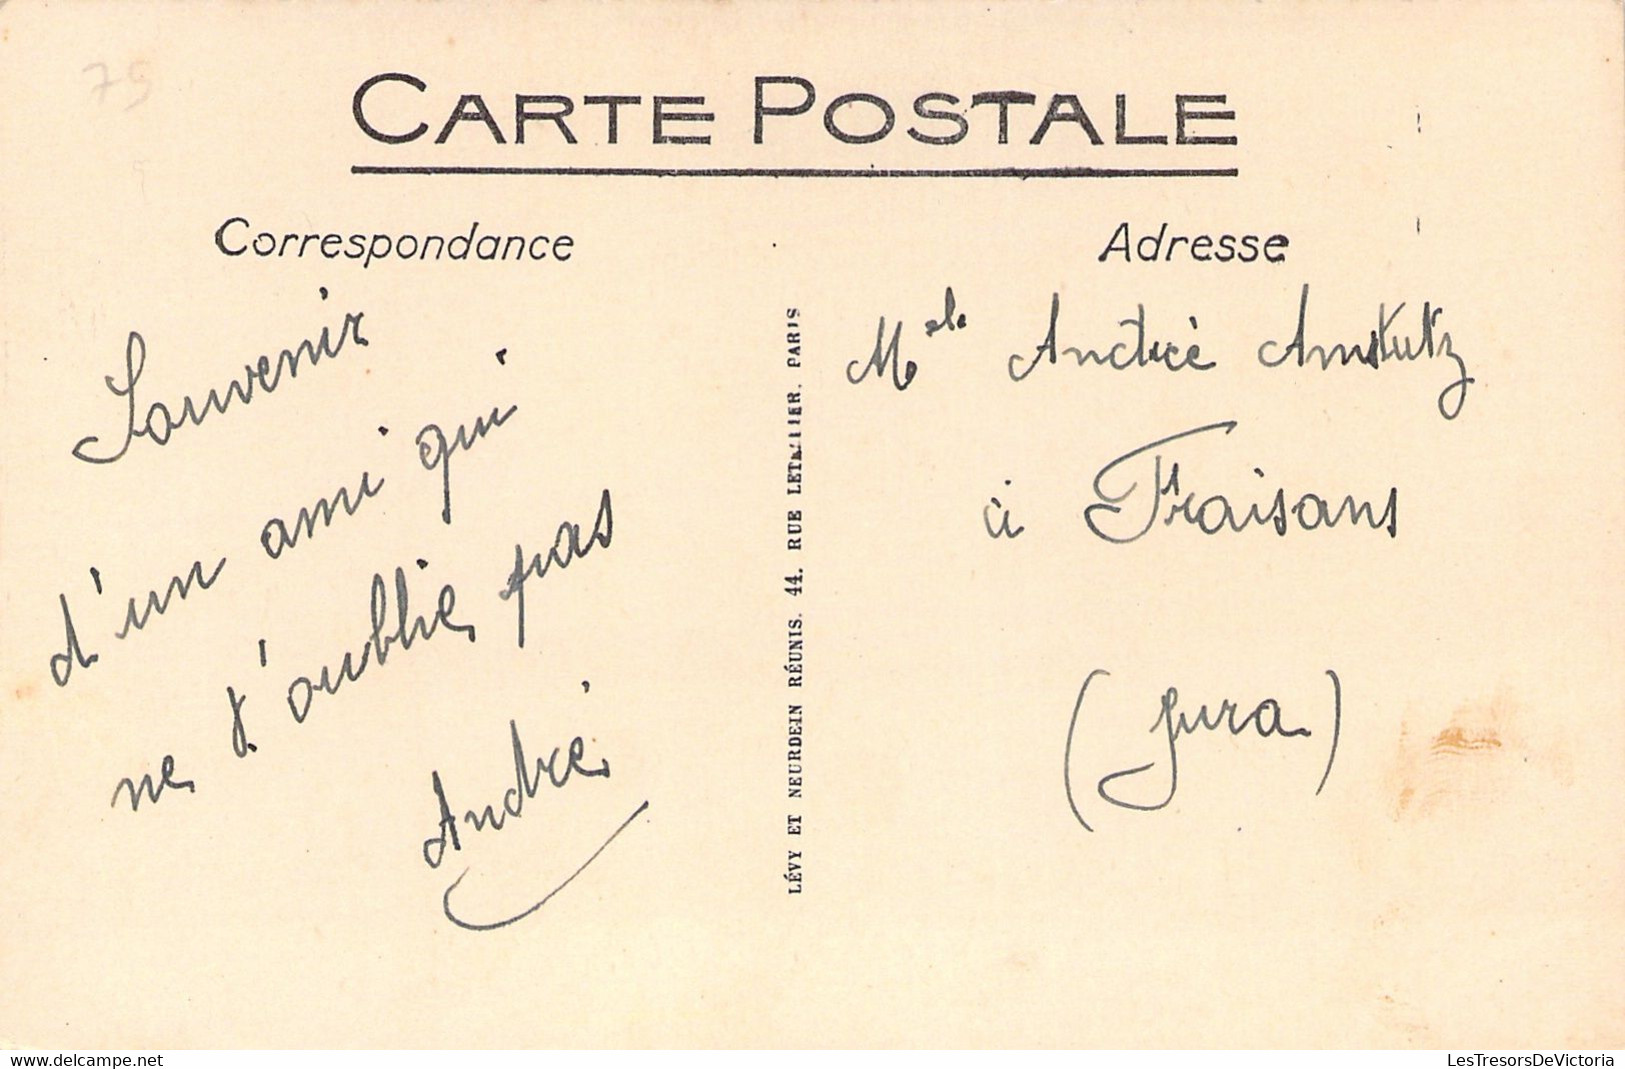 75
CARTE POSTALE
Correspondance
Adresse
Souvenir
d'un ami qui
ne t'oublie pas
André
LÉVY ET NEURDEIN RÉUNIS. 44. RUE LETELLIER. PARIS
Melle Andrée Amstutz
à Fraisans
(Jura)
delcampe.net
LesTresorsDeVictoria